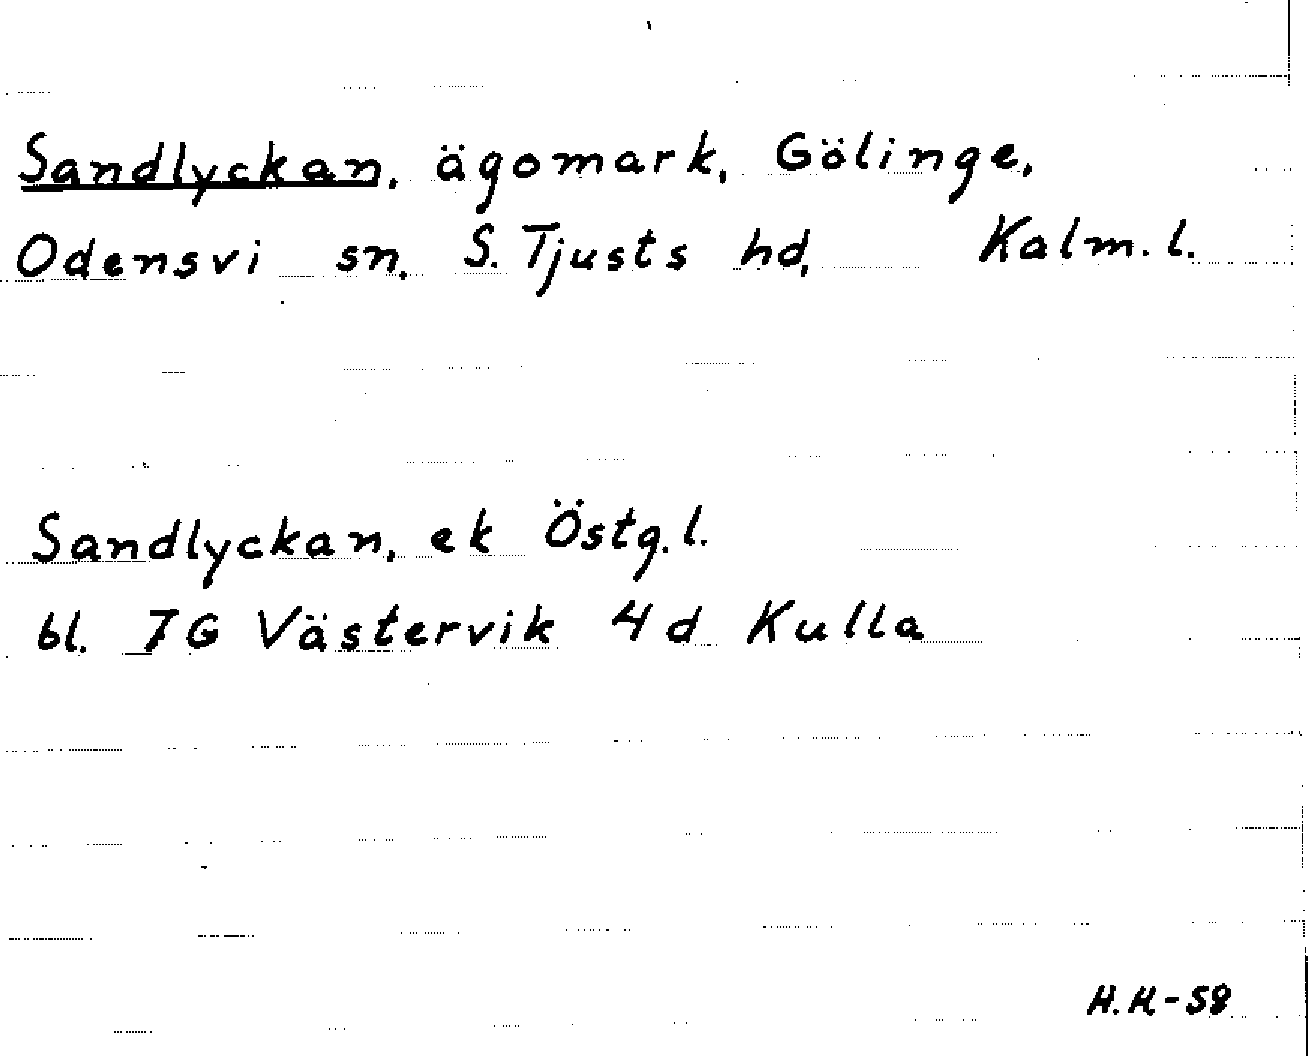 Sandlyckan, ägomark, Gölinge,
Odensvi sn, S. Tjusts hd, Kalm. l.
Sandlyckan, ek Östg. l.
bl. 7G Västervik 4d Kulla
H.H-58